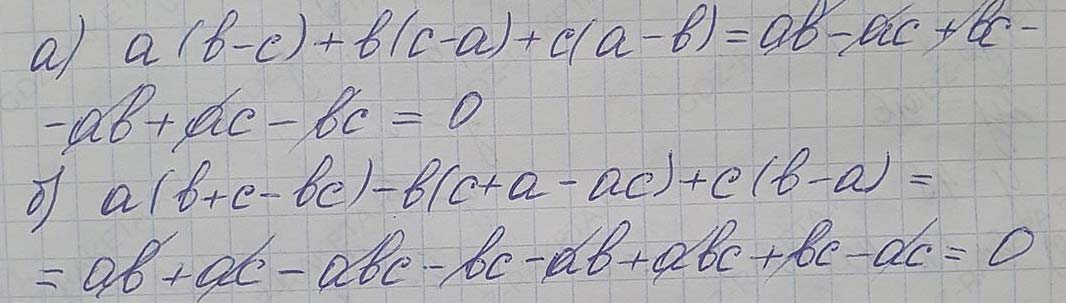 а) a(b-c)+b(c-a)+c(a-b)=ab-ac+bc-
-ab+ac-bc=0
б) a(b+c-bc)-b(c+a-ac)+c(b-a)=
=ab+ac-abc-bc-ab+abc+bc-ac=0